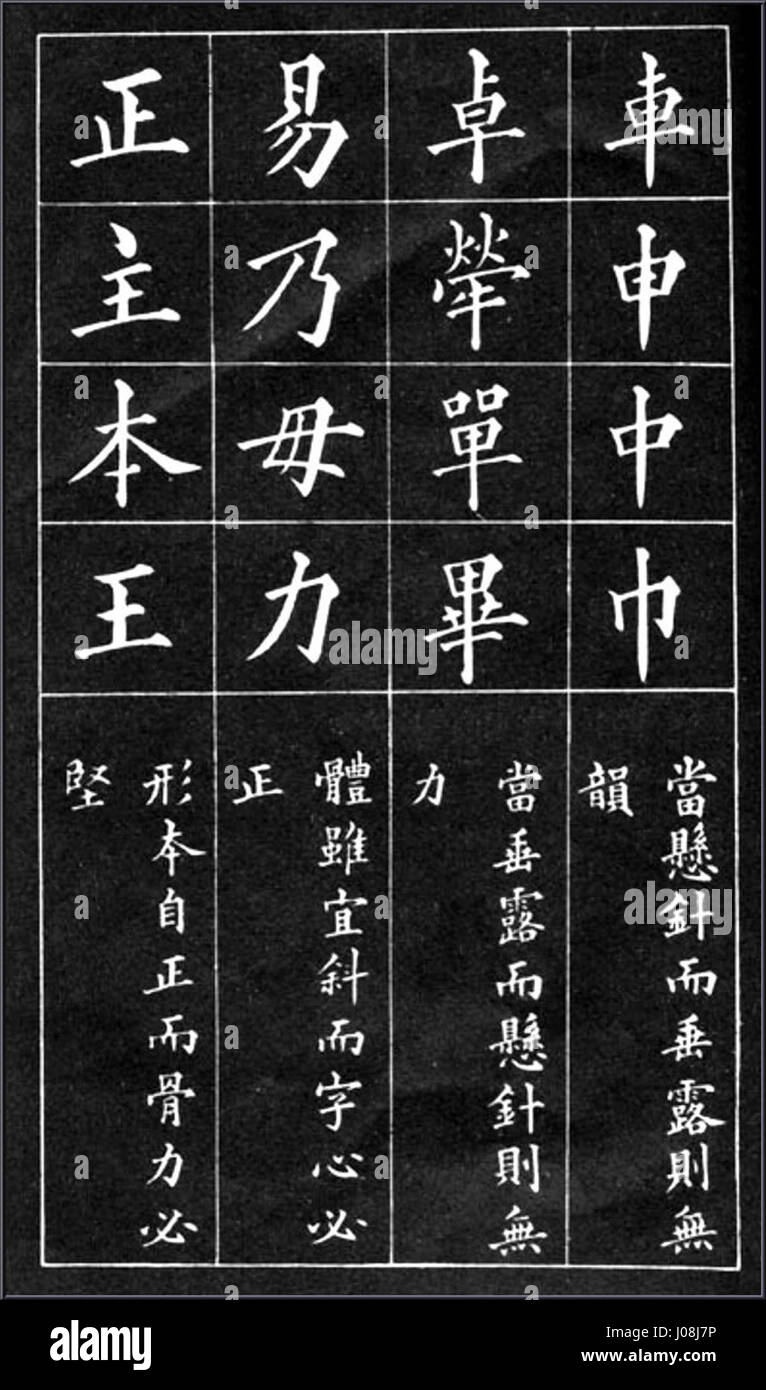 車申中巾
當懸針而垂露則無
韻
卓犖單畢
當垂露而懸針則無
力
易乃毋力
體雖宜斜而字心必
正
正主本王
形本自正而骨力必
堅
alamy
alamy
alamy
a
alamy
Image ID: J08J7P
www.alamy.com